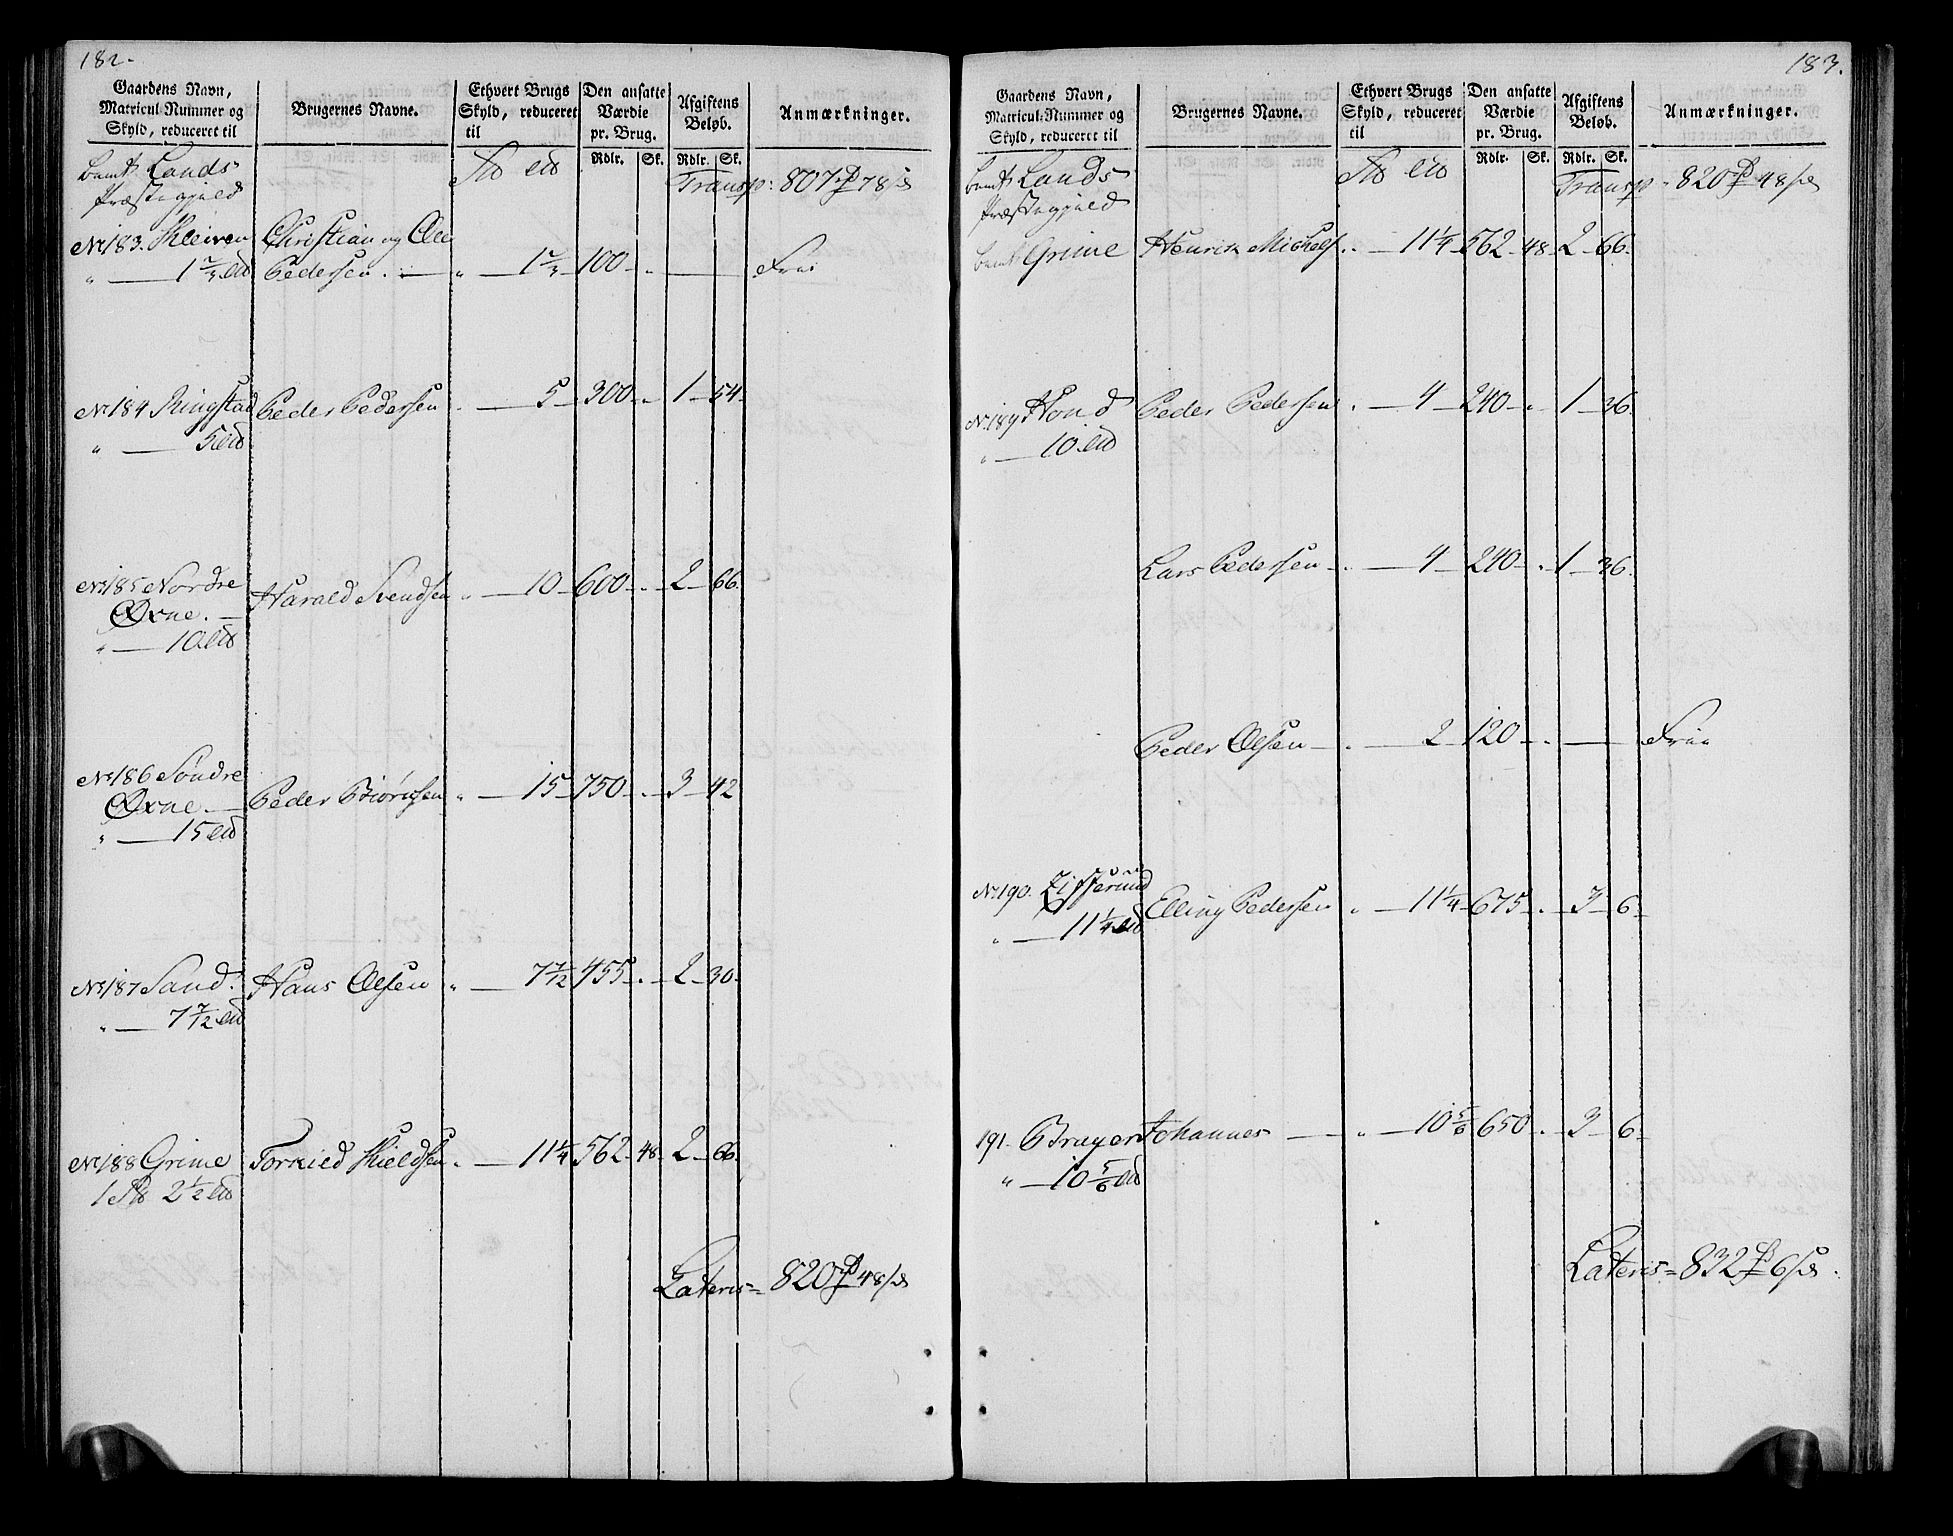 182.
Gaardens Navn, Matricul-Nummer og Skyld, reduceret til
Brugernes Navne.
Ethvert Brugs Skyld, reduceret til
Den ansatte Værdie pr. Brug.
Afgiftens Beløb.
Anmærkninger.
Rdlr. Sk. Rdlr. Sk.
Lands
Præstegjeld
Transp: 807 78
No 183. Kleiven Christian og Ole
" 1 2/3 Pedersen. " 1 2/3 100 " Frie
No 184 Ringstad Peder Pedersen " 5 300 " 1 54
" 5
No 185 Nordre Harald Svendsen " 10 600 " 2 66
Øxne.
" 10
No 186 Søndre
Øxne. Peder Biørnsen " 15 750 " 3 42
" 15
No 187 Sand. Hans Olsen " 7 7/12 455 " 2 30
" 7 7/12
No 188 Grime Torkild Kieldsen " 11 1/4 562 48 2 66
1 2 1/2
Lateris = 820 48
183.
Gaardens Navn, Matricul-Nummer og Skyld, reduceret til
Brugernes Navne.
Ethvert Brugs Skyld, reduceret til
Den ansatte Værdie pr. Brug.
Afgiftens Beløb.
Anmærkninger.
Rdlr. Sk. Rdlr. Sk.
Lands
Præstegjeld
Transp 820 48
Grime Henrik Michels. " 11 1/4 562 48 2 66
No 189 Hond Peder Pedersen " 4 240 " 1 36
" 10
Lars Pedersen " 4 240 " 1 36
Peder Olsen " 2 120 " Frie
No 190. Elling Pedersen " 11 1/4 675 " 3 6
" 11 1/4
191. Brager Johannes " 10 5/6 650 " 3 6
" 10 5/6
Lateris = 832 6